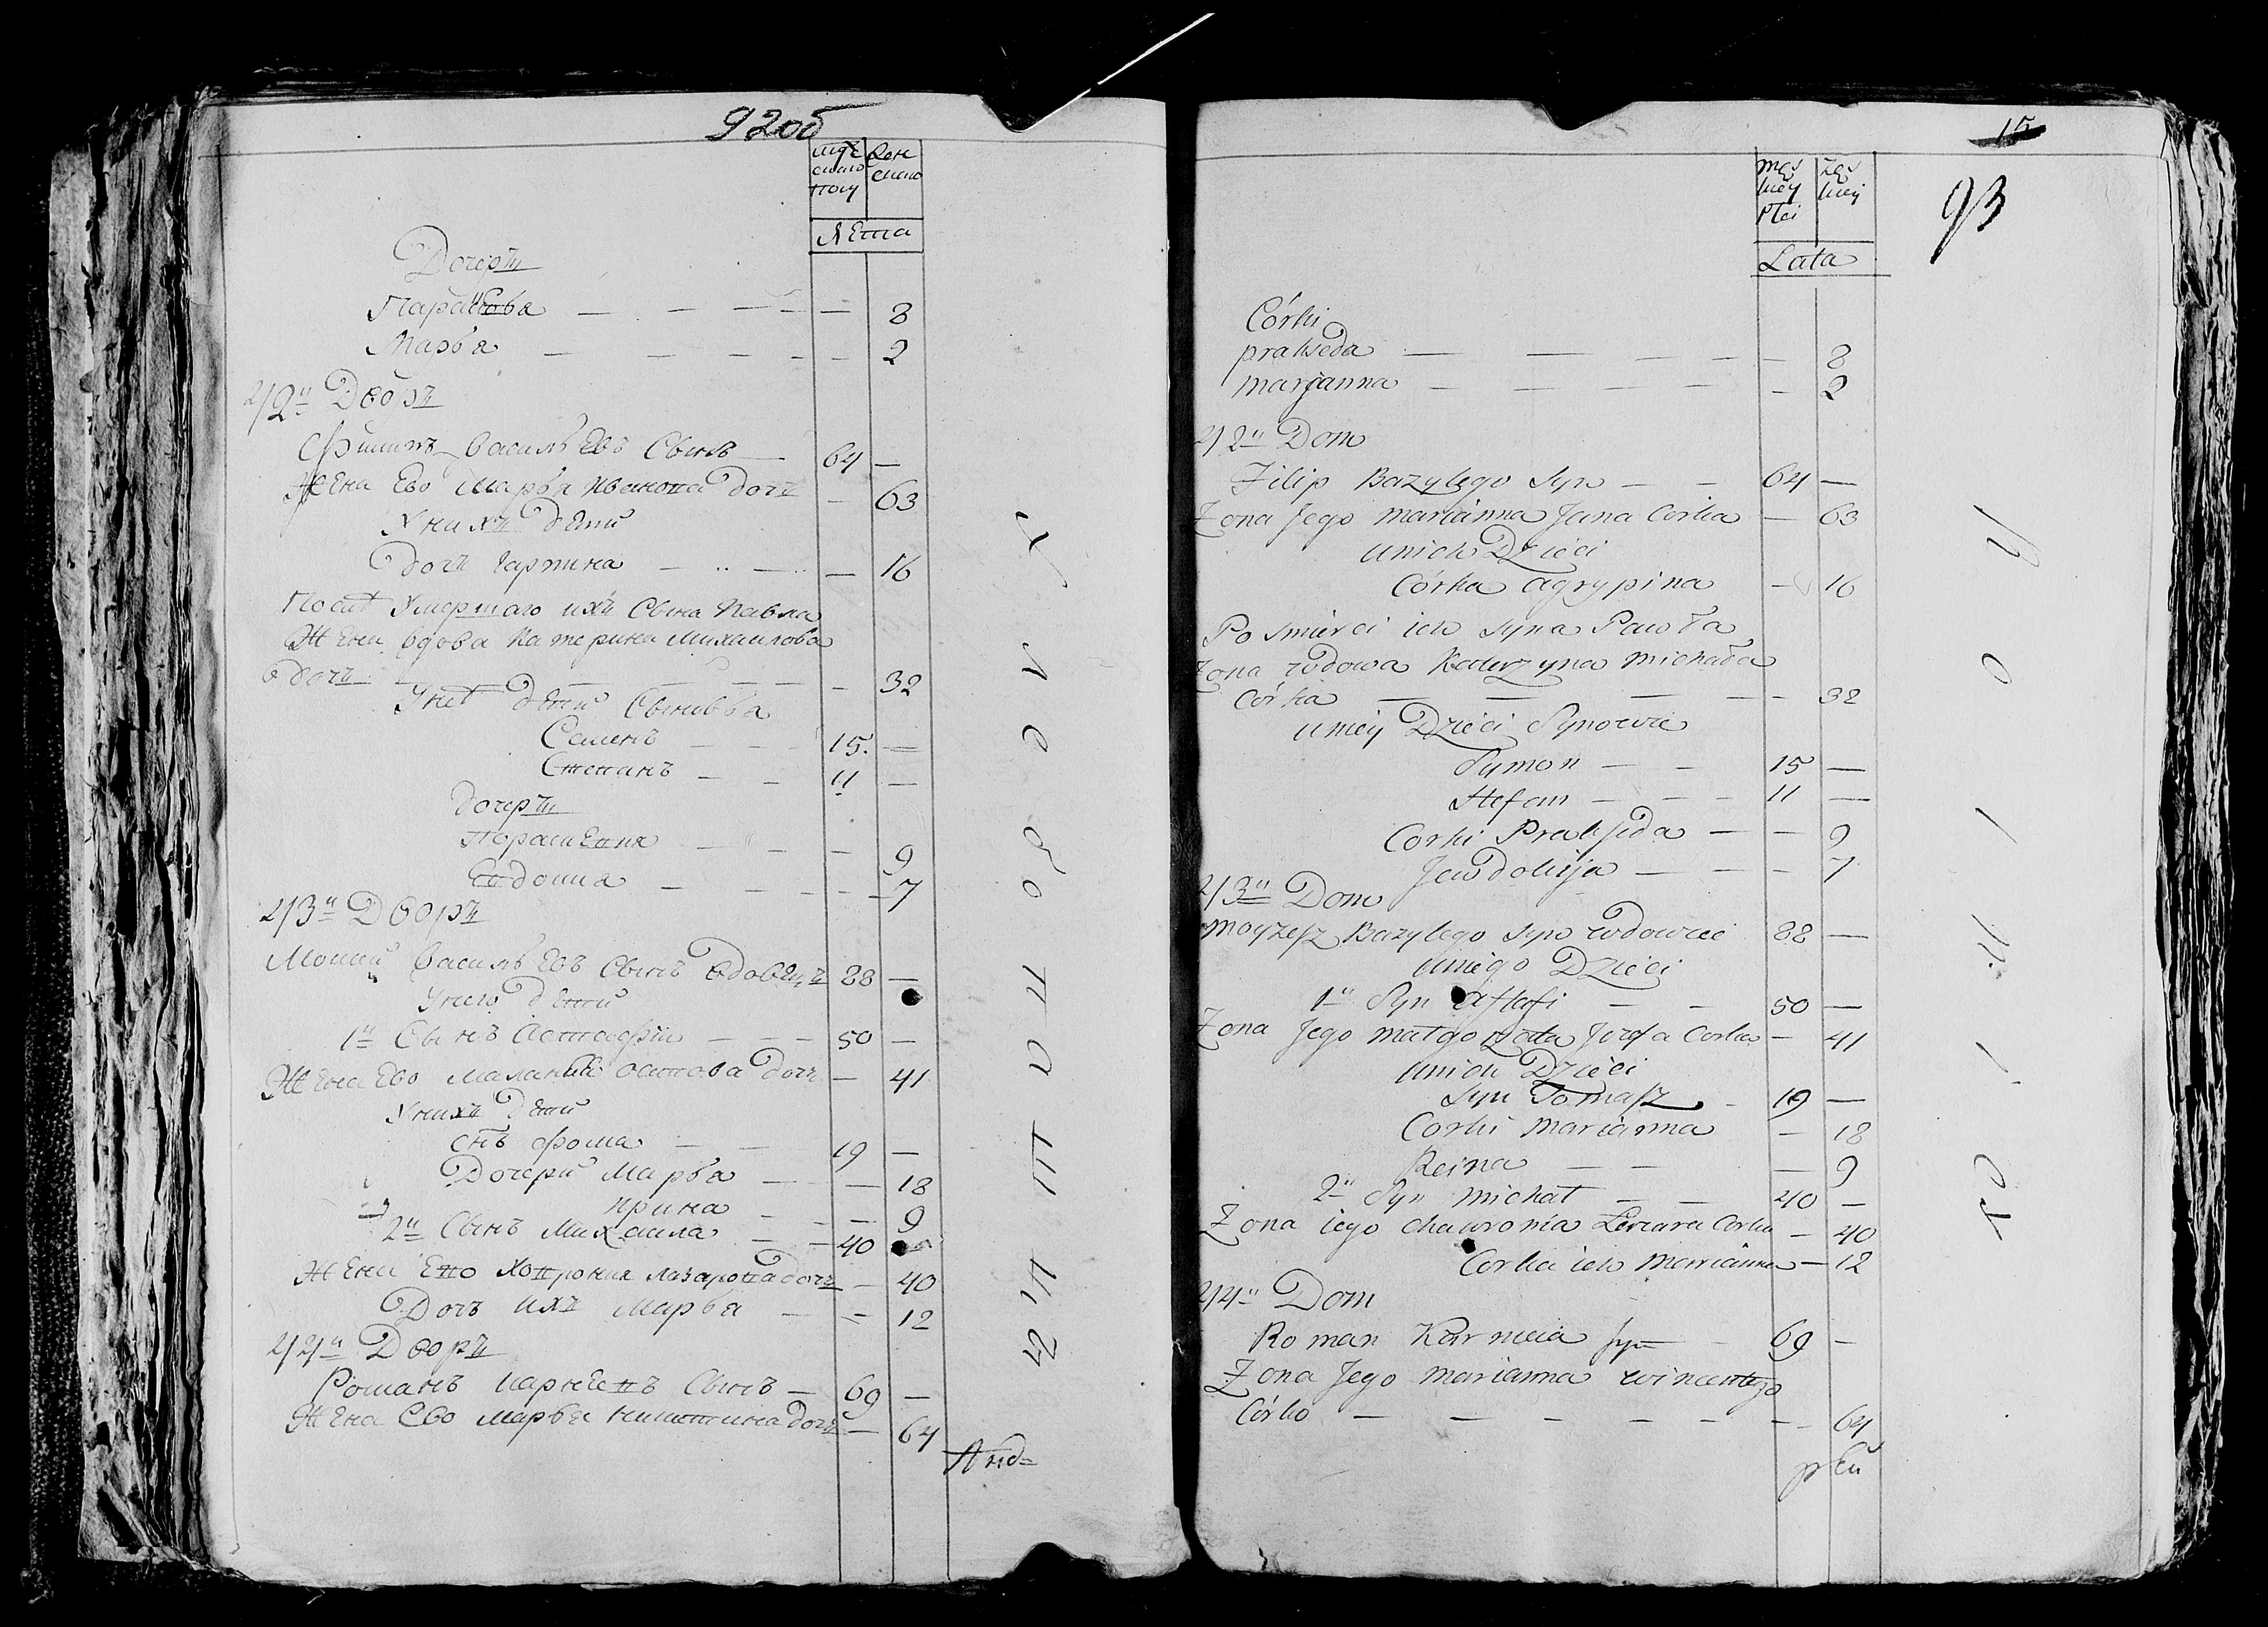 92об
мужеского полу
женского
Лета
Дочери
Парасковя — — — — 8
Марья — — — — 2
42й Дворъ
Филипъ Васильевъ Сынъ — 64 —
Жена Ево Марья Иванова дочь — 63
У нихъ дети
дочь Гарпина — — — 16
После Умершаго ихъ Сына Павла
Жена вдова Катерина Михаилова
дочь — — — — 32
У неё дети Сыновья
Семенъ — — 15 —
Степанъ — — 11 —
дочери
Евдокия — — — 7
43й Дворъ
Мосей Васильевъ Сынъ вдовецъ 88 —
У него дети
1й Сынъ Астафий — — 50 —
Жена Ево Маланья Осипова дочь — 41
У нихъ дети
снъ Фома — — 19 —
Дочери Марья — — 18
Ирина — — 9
2й Сынъ Михаила — — 40
Жена Ево Хаврония Лазарова дочь — 40
Дочь ихъ Марья — — 12
44й Дворъ
Романъ Карнеевъ Сынъ — 69 —
Жена Ево Марья Никитина дочь — 64
Анд=
15
93
męskiey płci
żeńskiey
Lata
Córki
prakseda — — — — — 8
marjanna — — — — — 2
42й Dom
Filip Bazylego Syn — — 64 —
Zona Jego marianna Jana Corka — 63
unich Dzieci
Córka agrypina — 16
Po Smierci ich syna Pawła
Zona wdowa Katerzyna michała
Córka — — — — — 32
uniey Dzieci Synowie
Symon — — 15 —
Stefan — — — 11 —
Corki Prakseda — — 9
Jewdokija — — — 7
43й Dom
moyzesz Bazylego syn wdowiec 88 —
uniego Dzieci
1й Syn astafi — — 50 —
Zona Jego małgorzata Jozefa Corka — 41
unich Dzieci
Syn Tomasz — 19 —
Corki marianna — 18
Reina — — — 9
2й Syn michał — — 40 —
Zona iego chawronia Łazara Corka — 40
Corka ich marianna — 12
44й Dom
Roman Karnieia syn — 69 —
Zona Jego marianna wincentego
Córka — — — — — — 64